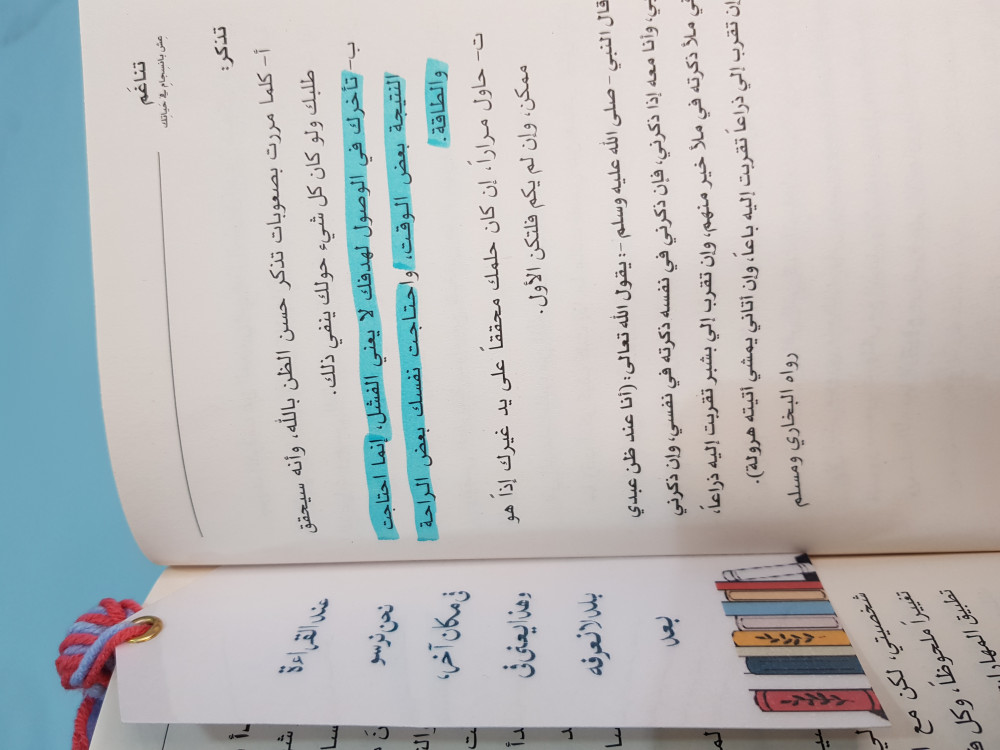 تناغم
عِش بانسجام في حياتك
تذكر:
أ- كلما مررت بصعوبات تذكر حسن الظن بالله، وأنه سيحقق
طلبك ولو كان كل شيء حولك ينفي ذلك.
ب- تأخرك في الوصول لهدفك لا يعني الفشل، إنما احتاجت
النتيجة بعض الوقت، واحتاجت نفسك بعض الراحة
والطاقة.
ت- حاول مراراً، إن كان حلمك محققاً على يد غيرك إذاً هو
ممكن، وإن لم يكم فلتكن الأول.
قال النبي - صلى الله عليه وسلم -: يقول الله تعالى: (أنا عند ظن عبدي
بي، وأنا معه إذا ذكرني، فإن ذكرني في نفسه ذكرته في نفسي، وإن ذكرني
في ملأ ذكرته في ملأ خير منهم، وإن تقرب إلي بشبر تقربت إليه ذراعاً،
إن تقرب إلي ذراعاً تقربت إليه باعاً، وإن أتاني يمشي أتيته هرولة).
رواه البخاري ومسلم
عند القراءة
نحن نرسو
في مكان آخر،
وهذا يعني في
بلد لا نعرفه
بعد
شخصيتي، لكن مع
تغييراً ملحوظاً، وكل
تطبيق